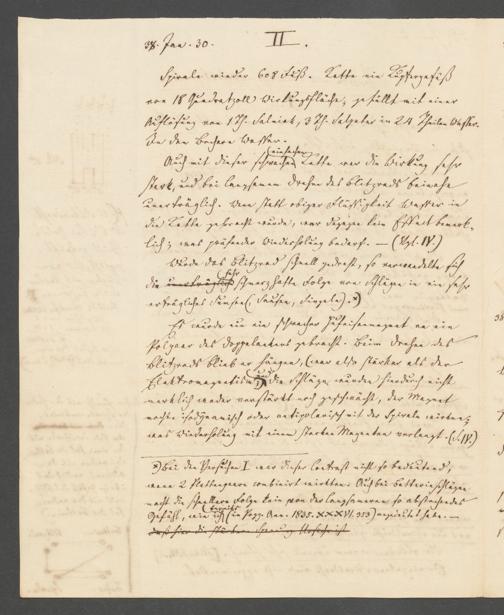 38. Jan. 30. II.
Spirale wieder 608 Fuß. Kette ein Kupfergefäß
von 18 Quadratzoll Wirkungsfläche, gefüllt mit einer
Auflösung von 1 Th. Salmiak, 3 Th. Salpeter in 24 Theilen Wasser.
In den Bechern Wasser.
einfachen
Auch mit dieser schwachen Kette war die Wirkung sehr
stark, und bei langsamem Drehen des Blitzrads beinahe
unerträglich. Wenn statt obiger Flüssigkeit Wasser in
die Kette gebracht wurde, war dagegen kein Effect bemerk-
lich; was prüfender Wiederholung bedarf. — (Vgl. IV.)
Wurde das Blitzrad schnell gedreht, so verwandelte sich
sehr
die unerträglich schmerzhafte Folge von Schlägen in ein sehr
erträgliches Sumsen (Sausen, ).*)
Es wurde nun ein schwacher Hufeisenmagnet an ein
Polpaar des Doppelankers gebracht. Beim Drehen des
Blitzrads blieb er hängen, (war also stärker als der
Elektromagnetismus) die Schläge wurden hierdurch nicht
merklich weder verstärkt noch geschwächt, der Magnet
mochte isodynamisch oder antipolarisch mit der Spirale wirken;
was Wiederholung mit einem starken Magneten verlangt. (s. IV.)
*) Bei den Versuchen I war dieser Contrast nicht so bedeutend,
wenn 2 Plattenpaare combinirt wirkten. Auch bei Batterieschlägen
macht die schnellere Folge kein von der langsameren so abstechendes
bereits
Gefühl, wie ich (in Pogg. Ann. 1835. XXXVI. 353) angeführt habe. —